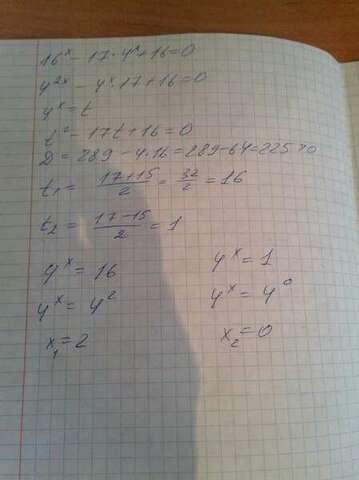 16^x - 17·4^x + 16 = 0
4^2x - 4^x·17 + 16 = 0
4^x = t
t^2 - 17t + 16 = 0
D = 289 - 4·16 = 289 - 64 = 225 > 0
t1 = (17+15)/2 = 32/2 = 16
t2 = (17-15)/2 = 1
4^x = 16 4^x = 1
4^x = 4^2 4^x = 4^0
x1 = 2 x2 = 0